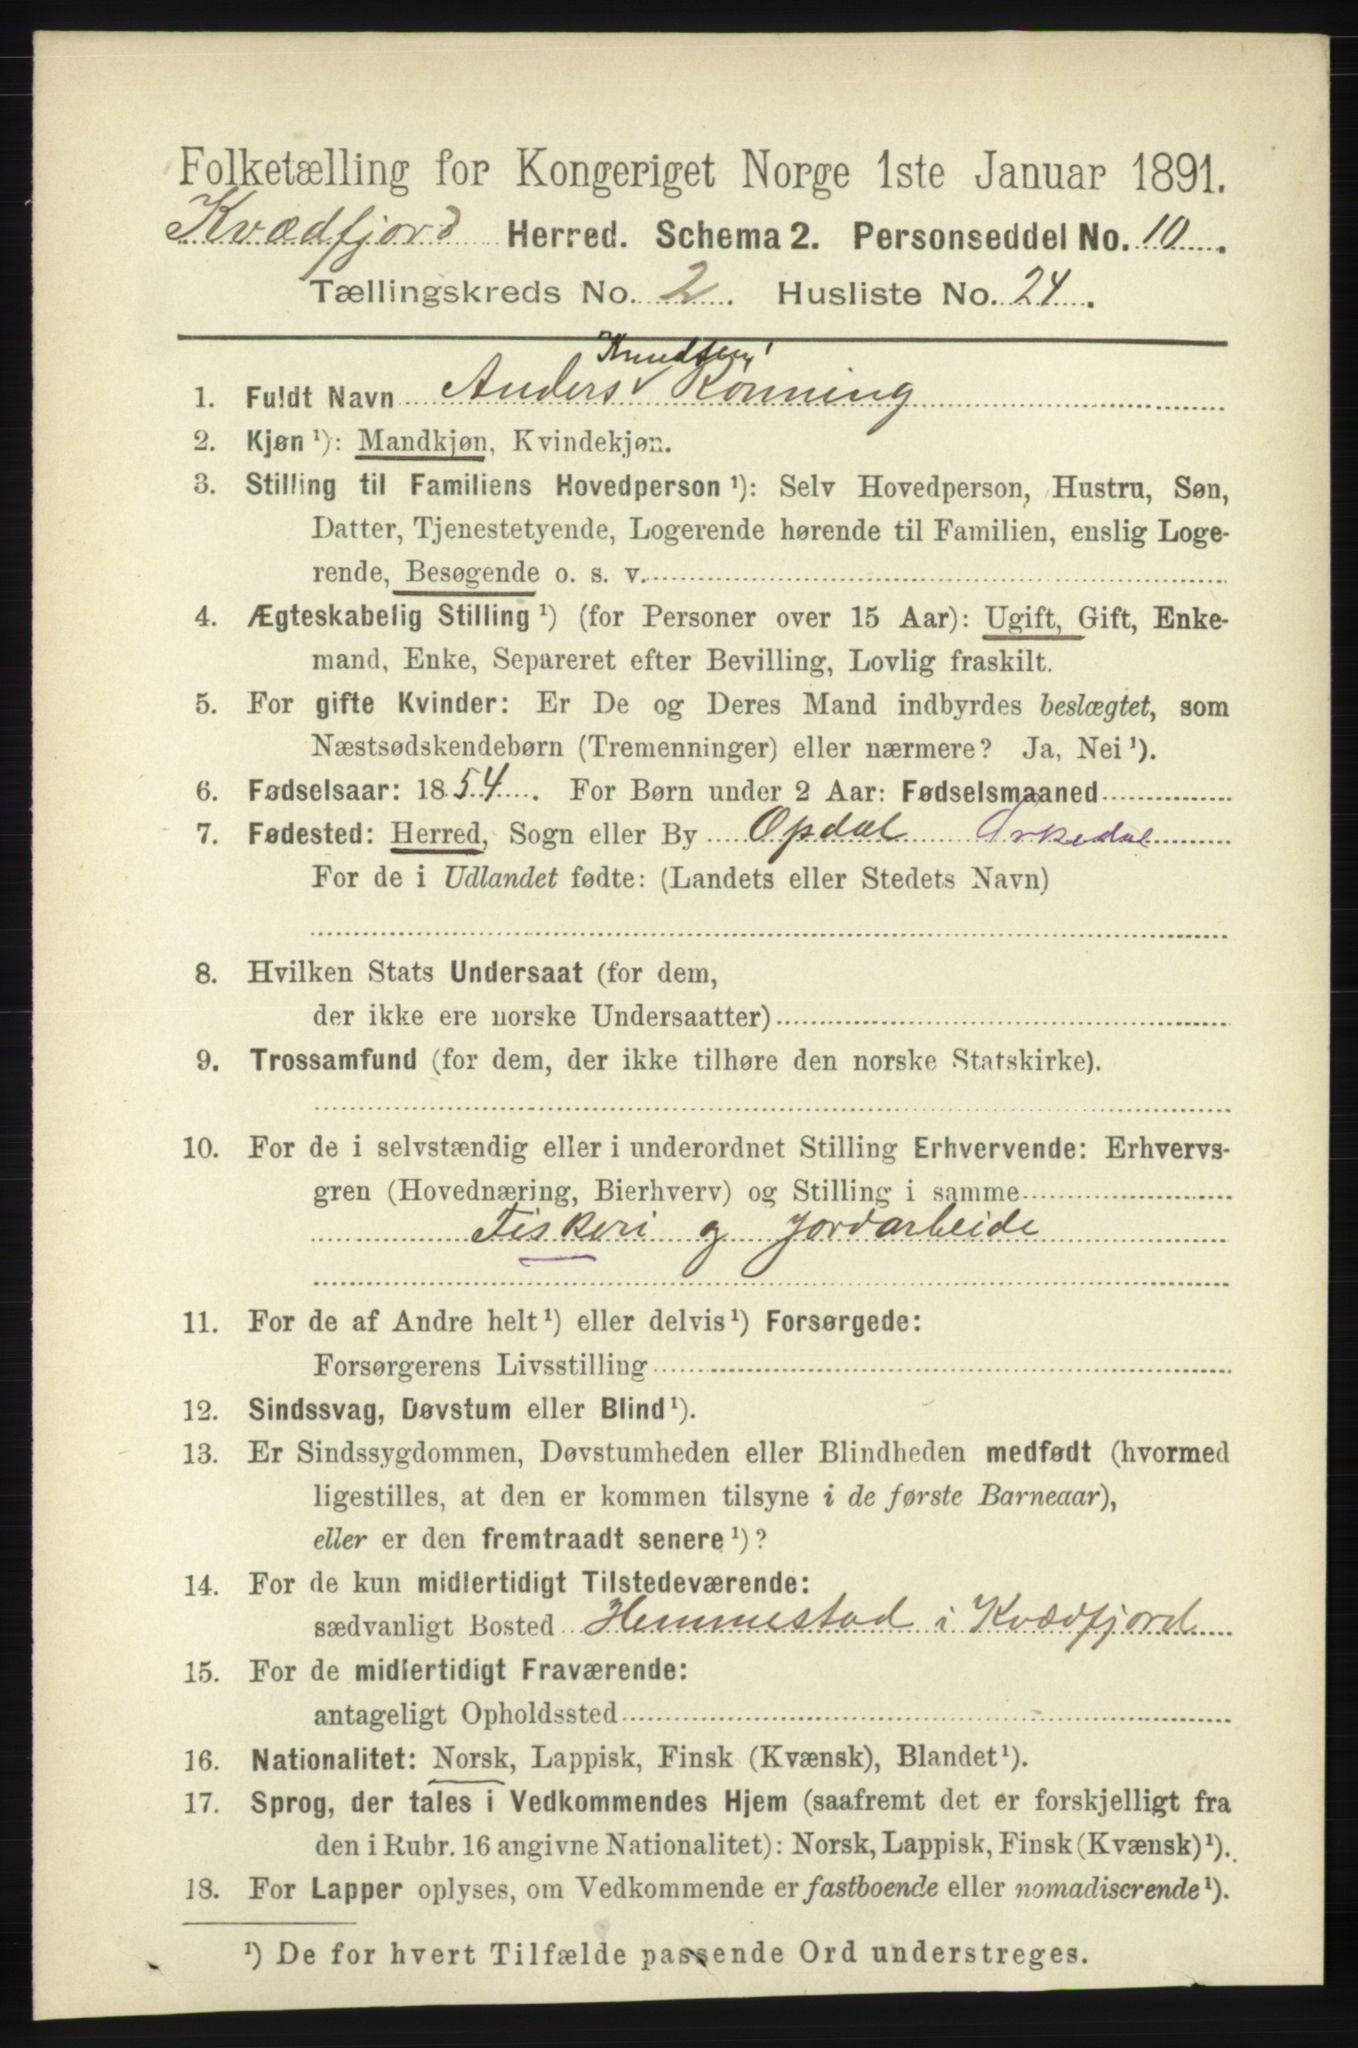 Folketælling for Kongeriget Norge 1ste Januar 1891.
Kvædfjord Herred. Schema 2. Personseddel No. 10.
Tællingskreds No. 2. Husliste No. 24.
Knudsen
1. Fuldt Navn Anders v Rønning
2. Kjøn ¹): Mandkjøn, Kvindekjøn.
3. Stilling til Familiens Hovedperson ¹): Selv Hovedperson, Hustru, Søn,
Datter, Tjenestetyende, Logerende hørende til Familien, enslig Loge-
rende, Besøgende o. s. v.
4. Ægteskabelig Stilling ¹) (for Personer over 15 Aar): Ugift, Gift, Enke-
mand, Enke, Separeret efter Bevilling, Lovlig fraskilt.
5. For gifte Kvinder: Er De og Deres Mand indbyrdes beslægtet, som
Næstsødskendebørn (Tremenninger) eller nærmere? Ja, Nei ¹).
6. Fødselsaar: 1854. For Børn under 2 Aar: Fødselsmaaned
7. Fødested: Herred, Sogn eller By Opdal Orkedal
For de i Udlandet fødte: (Landets eller Stedets Navn)
8. Hvilken Stats Undersaat (for dem,
der ikke ere norske Undersaatter)
9. Trossamfund (for dem, der ikke tilhøre den norske Statskirke).
10. For de i selvstændig eller i underordnet Stilling Erhvervende: Erhvervs-
gren (Hovednæring, Bierhverv) og Stilling i samme
Fiskeri og Jordarbeide
11. For de af Andre helt ¹) eller delvis ¹) Forsørgede:
Forsørgerens Livsstilling
12. Sindssvag, Døvstum eller Blind ¹).
13. Er Sindssygdommen, Døvstumheden eller Blindheden medfødt (hvormed
ligestilles, at den er kommen tilsyne i de første Barneaar),
eller er den fremtraadt senere ¹)?
14. For de kun midlertidigt Tilstedeværende:
sædvanligt Bosted Hemmestad i Kvædfjord
15. For de midlertidigt Fraværende:
antageligt Opholdssted
16. Nationalitet: Norsk, Lappisk, Finsk (Kvænsk), Blandet ¹).
17. Sprog, der tales i Vedkommendes Hjem (saafremt det er forskjelligt fra
den i Rubr. 16 angivne Nationalitet): Norsk, Lappisk, Finsk (Kvænsk) ¹).
18. For Lapper oplyses, om Vedkommende er fastboende eller nomadiserende ¹).
¹) De for hvert Tilfælde passende Ord understreges.